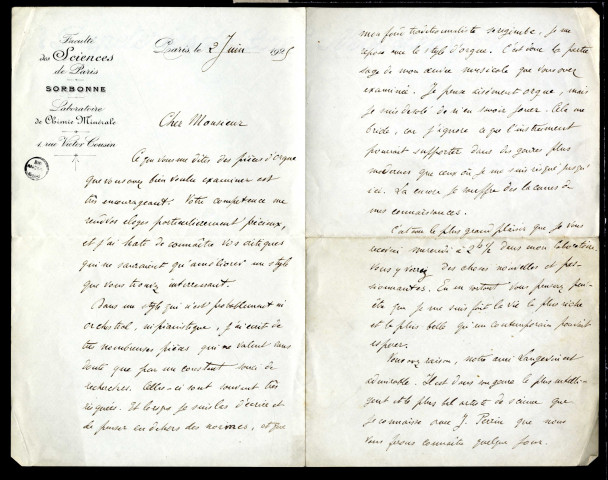 Faculté
des Sciences
de Paris
SORBONNE
Laboratoire
de Chimie Minérale
1, rue Victor Cousin
Paris, le 2 Juin 1925
Cher Monsieur
Ce que vous me dites des pièces d'orgue
que vous avez bien voulu examiner est
très encourageant. Votre compétence me
rend vos éloges particulièrement précieux,
et j'ai hâte de connaître vos critiques
qui ne sauraient qu'améliorer un style
que vous trouvez intéressant.
Dans un style qui n'est probablement ni
orchestral, ni pianistique, j'ai écrit de
très nombreuses pièces qui ne valent sans
doute que par un constant souci de
recherches. Celles-ci sont souvent très
risquées. Et lorsque je suis las d'écrire et
de penser en dehors des normes, et que
mon fonds traditionnaliste regimbe, je me
repose avec le style d'orgue. C'est donc la partie
sage de mon œuvre musicale que vous avez
examinée. Je pense aisément orgue, mais
je suis désolé de n'en savoir jouer. Cela me
bride, car j'ignore ce que l'instrument
pourrait supporter dans des genres plus
modernes que ceux où je me suis risqué jusqu'
ici. Là encore je souffre des lacunes de
mes connaissances.
C'est avec le plus grand plaisir que je vous
recevrai mercredi à 2h 1/2 dans mon laboratoire.
Vous y verrez des choses nouvelles et pas-
sionnantes. En en sortant vous penserez peut-
être que je me suis fait la vie la plus riche
et la plus belle qu'un contemporain pouvait
espérer.
Vous avez raison, notre ami Langevin est
admirable. Il est dans son genre le plus intelli-
gent et le plus bel artiste de science que
je connaisse avec J. Perrin que nous
vous ferons connaître quelque jour.